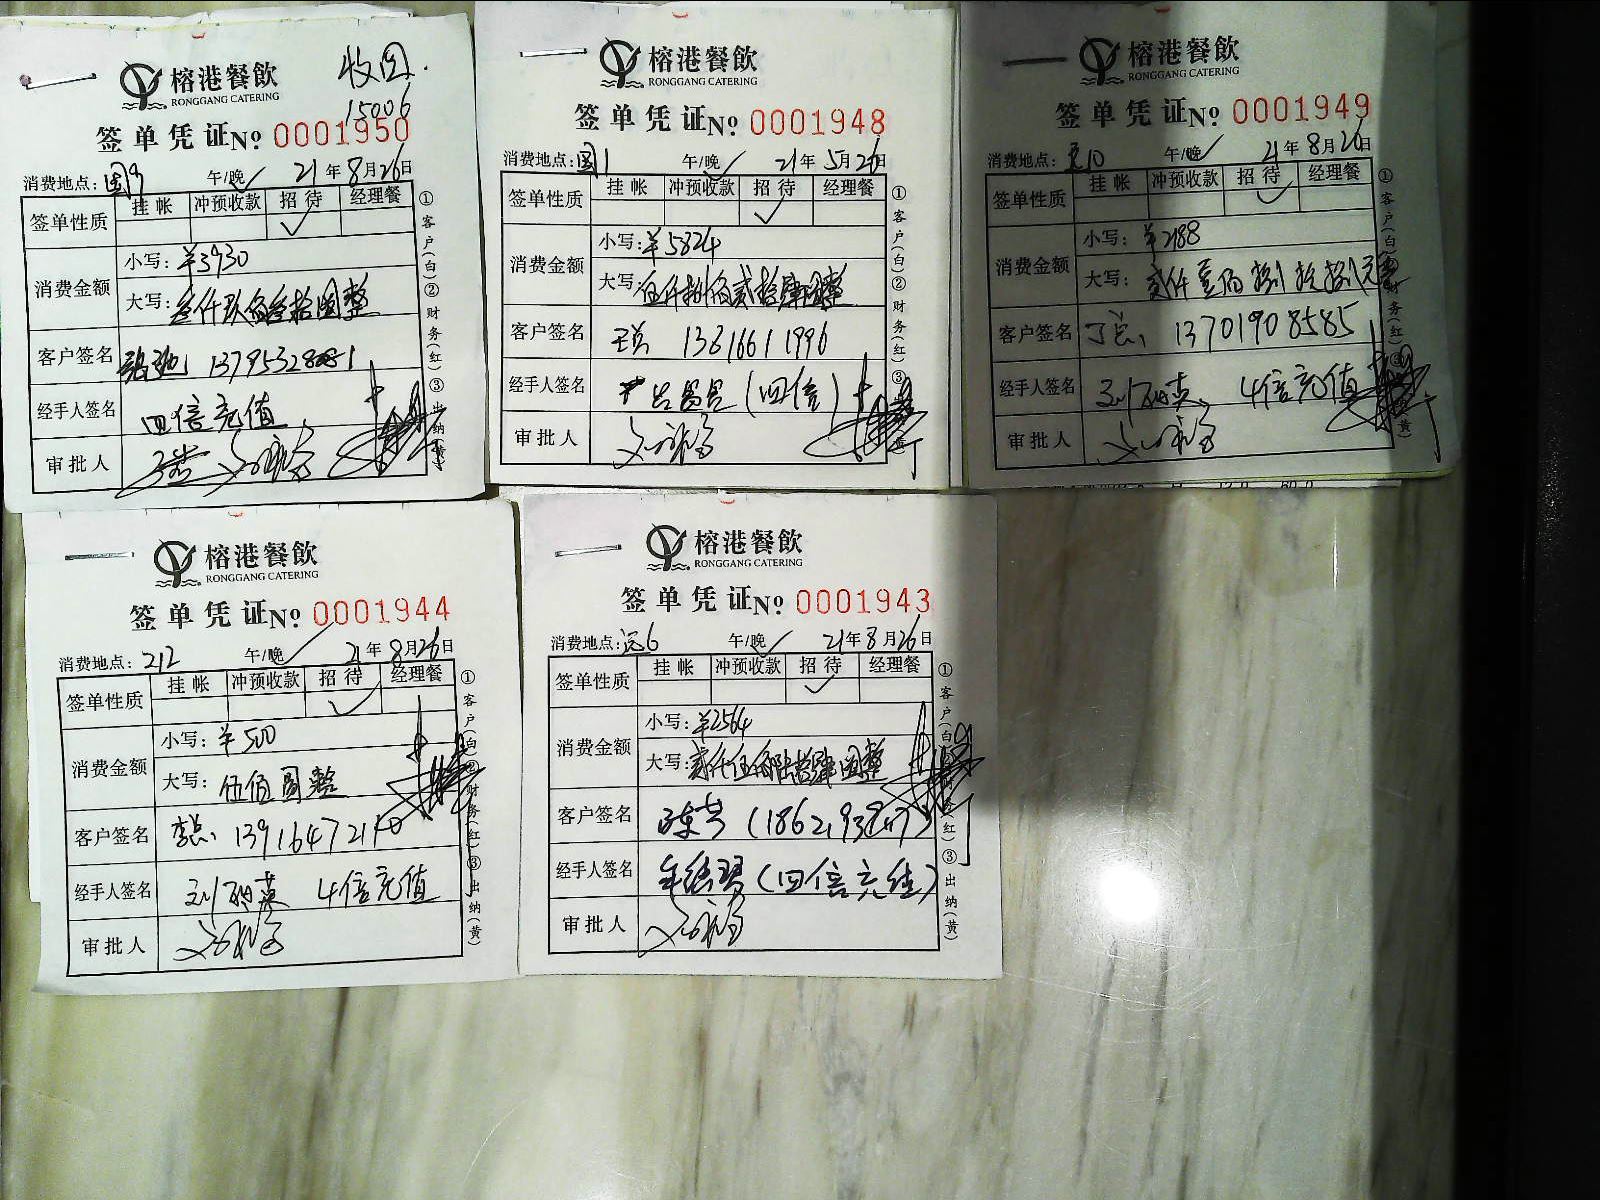 收回.
15006
榕港餐飲
RONGGANG CATERING
签单凭证 No 0001950
消费地点: 国9 午/晚 21年8月26日
签单性质 挂帐 冲预收款 招待 经理餐
消费金额 小写: ¥3930
大写: 叁仟玖佰叁拾圆整
客户签名
经手人签名 四倍充值
审批人
①客户(白)②财务(红)③出纳(黄)
榕港餐飲
RONGGANG CATERING
签单凭证 No 0001948
消费地点: 国1 午/晚 21年5月26日
签单性质 挂帐 冲预收款 招待 经理餐
消费金额 小写: ¥5824
大写: 伍仟捌佰贰拾肆圆整
客户签名 王总 13616611996
经手人签名 (四倍)
审批人
①客户(白)②财务(红)③
榕港餐飲
RONGGANG CATERING
签单凭证 No 0001949
消费地点: 午/晚 21年8月26日
签单性质 挂帐 冲预收款 招待 经理餐
消费金额 小写: ¥2188
大写: 贰仟壹佰捌拾捌元整
客户签名 丁总, 13701908585
经手人签名 4倍充值
审批人
①客户(白)②财务(红)③
榕港餐飲
RONGGANG CATERING
签单凭证 No 0001944
消费地点: 212 午/晚 21年8月26日
签单性质 挂帐 冲预收款 招待 经理餐
消费金额 小写: ¥500
大写: 伍佰圆整
客户签名 李总,
经手人签名 4倍充值
审批人
①客户(白)②财务(红)③出纳(黄)
榕港餐飲
RONGGANG CATERING
签单凭证 No 0001943
消费地点: 远6 午/晚 21年8月26日
签单性质 挂帐 冲预收款 招待 经理餐
消费金额 小写: ¥2564
大写: 贰仟伍佰陆拾肆圆整
客户签名
经手人签名 (四倍充值)
审批人
①客户(白)(红)③出纳(黄)